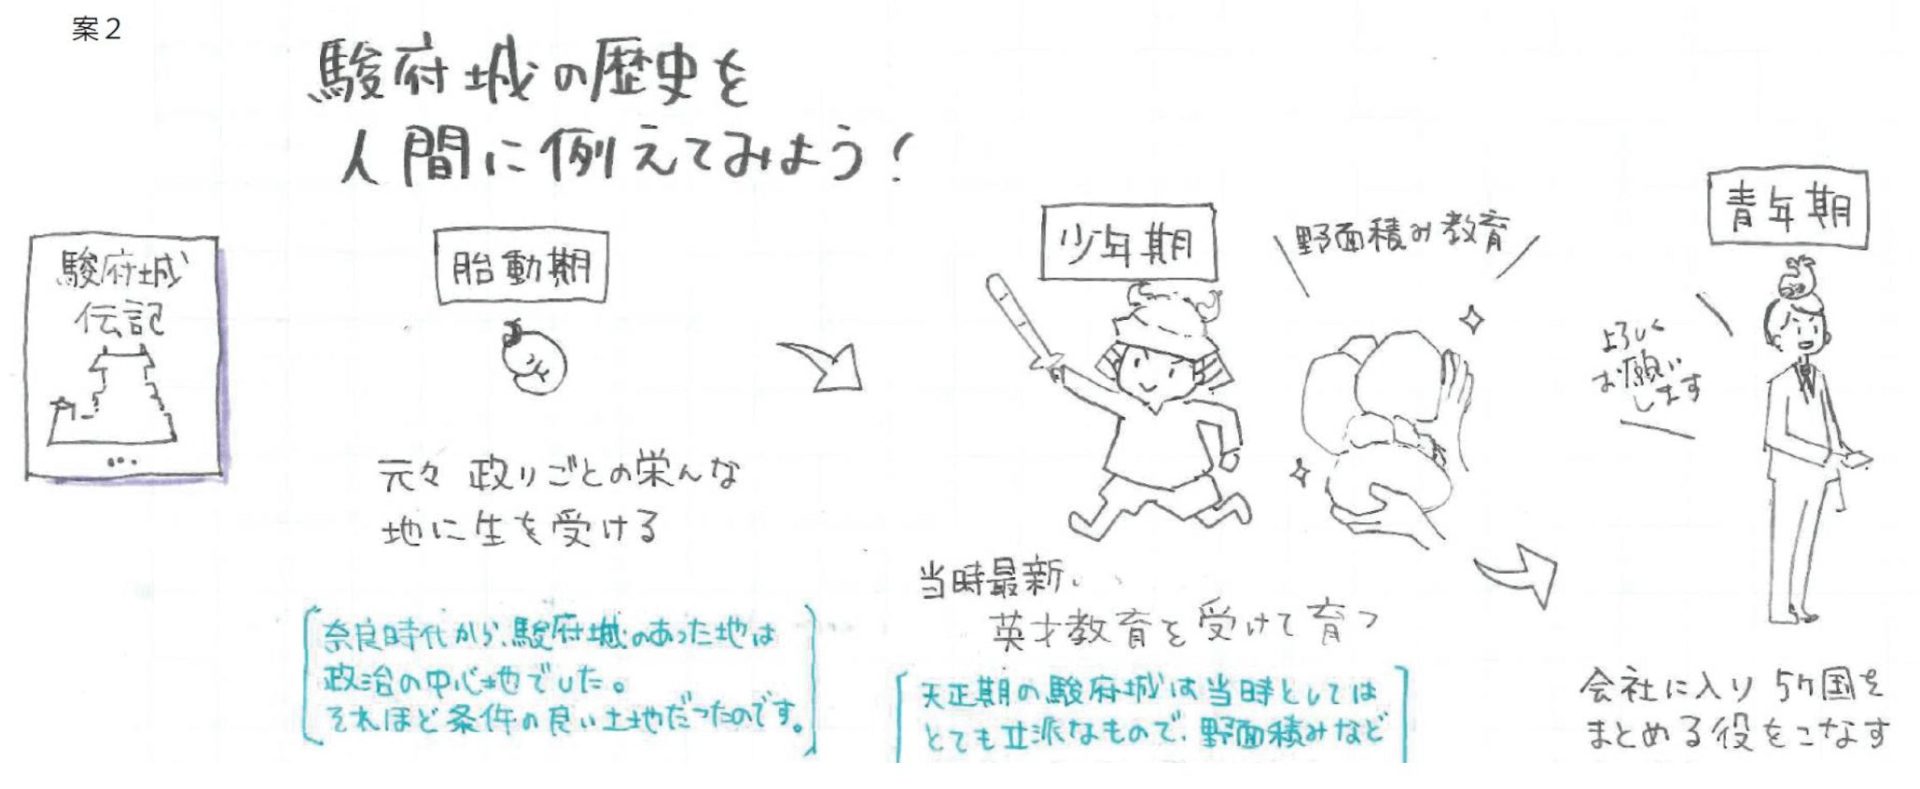 案2
駿府城の歴史を
人間に例えてみよう！
駿府城
伝記
胎動期
元々 政りごとの栄んな
地に生を受ける
奈良時代から、駿府城のあった地は
政治の中心地でした。
それほど条件の良い土地だったのです。
少年期
野面積み教育
当時最新、
英才教育を受けて育つ
天正期の駿府城は当時としては
とても立派なもので、野面積みなど
青年期
よろしく
お願い
します
会社に入り 5ヶ国を
まとめる役をこなす